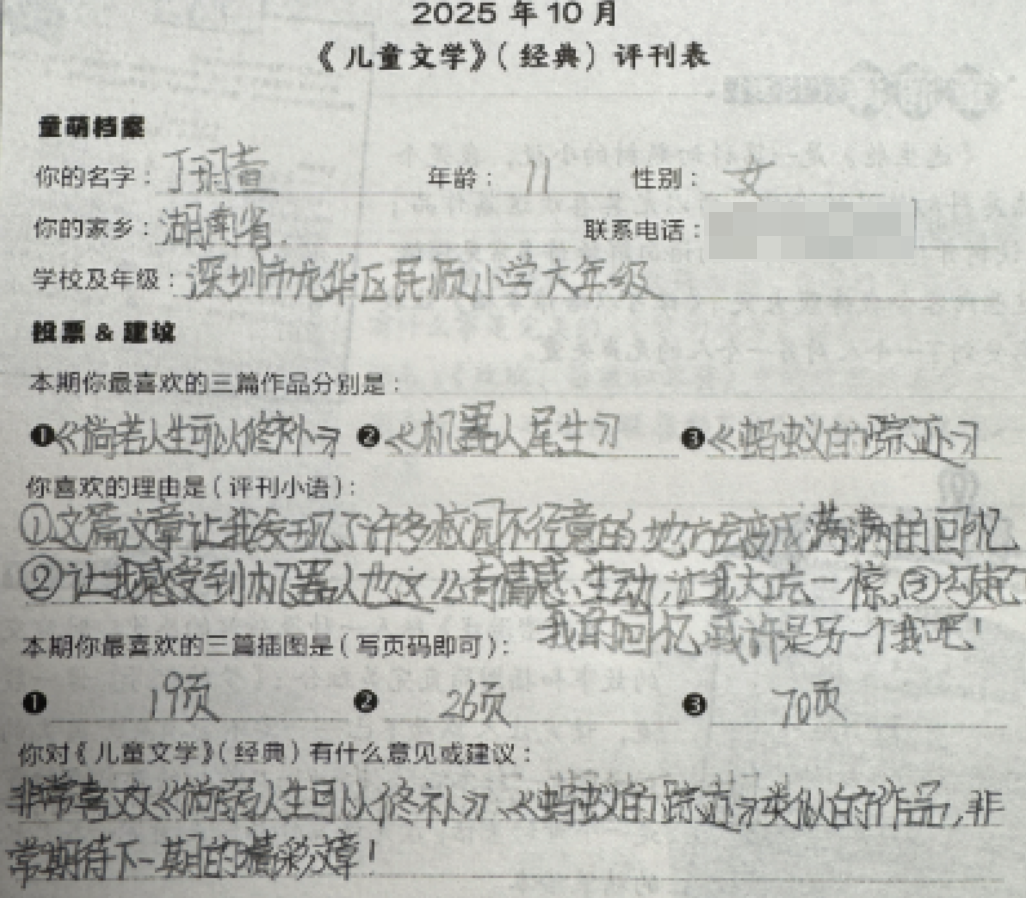 2025 年 10 月
《儿童文学》(经典) 评刊表
童萌档案
你的名字: 丁玥萱 年龄: 11 性别: 女
你的家乡: 湖南省. 联系电话:
学校及年级: 深圳市龙华区民顺小学六年级
投票 & 建议
本期你最喜欢的三篇作品分别是:
❶《倘若人生可以修补》 ❷《机器人尾生》 ❸《蚂蚁的踪迹》
你喜欢的理由是(评刊小语):
①这篇文章让我发现了许多校园不经意的地方会变成满满的回忆
②让我感受到机器人也这么有情感、生动,让我大吃一惊,③勾起
我的回忆,或许是另一个我吧!
本期你最喜欢的三篇插图是(写页码即可):
❶ 19页 ❷ 26页 ❸ 70页
你对《儿童文学》(经典) 有什么意见或建议:
非常喜欢《倘若人生可以修补》、《蚂蚁的踪迹》类似的作品,非
常期待下一期的精彩文章!